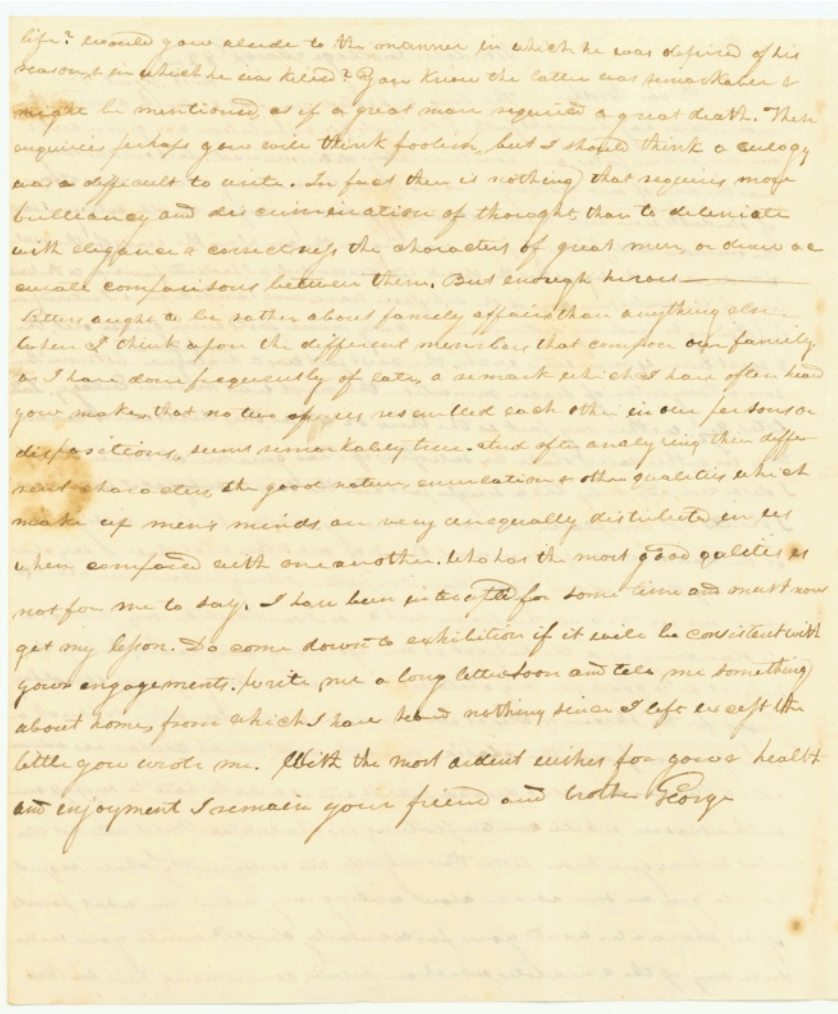 life? would you alude to the manner in which he was deprived of his
reason, & in which he was killed? You know the latter was remarkable &
might be mentioned, as if a great man required a great death. These
enquiries perhaps you will think foolish, but I should think a eulogy
was a difficult to write. In fact there is nothing that requires more
brilliancy and discrimination of thought, than to deleniate
with elegance & correctness the characters of great men, or draw ac
curate comparisons between them. But enough heroes
Letters aught to be rather about family affairs than anything else.
When I think upon the different members that compose our family,
as I have done frequently of late, a remark which I have often heard
you make, that no two of us resembled each other in our persons or
dispositions, seems remarkably true. And after analyzing their diffe-
rent characters, the good nature, emulation & other qualities which
make up men's minds are very unequally distributed in us
when compared with one another. Who has the most good qalities is
not for me to say. I have been for some time and must now
get my lesson. Do come down to exhibition if it will be consistent with
your engagements. Write me a long letter soon and tell me something
about home, from which I have heard nothing since I left except the
little you wrote me. With the most ardent wishes for your health
and enjoyment I remain your friend and brother George